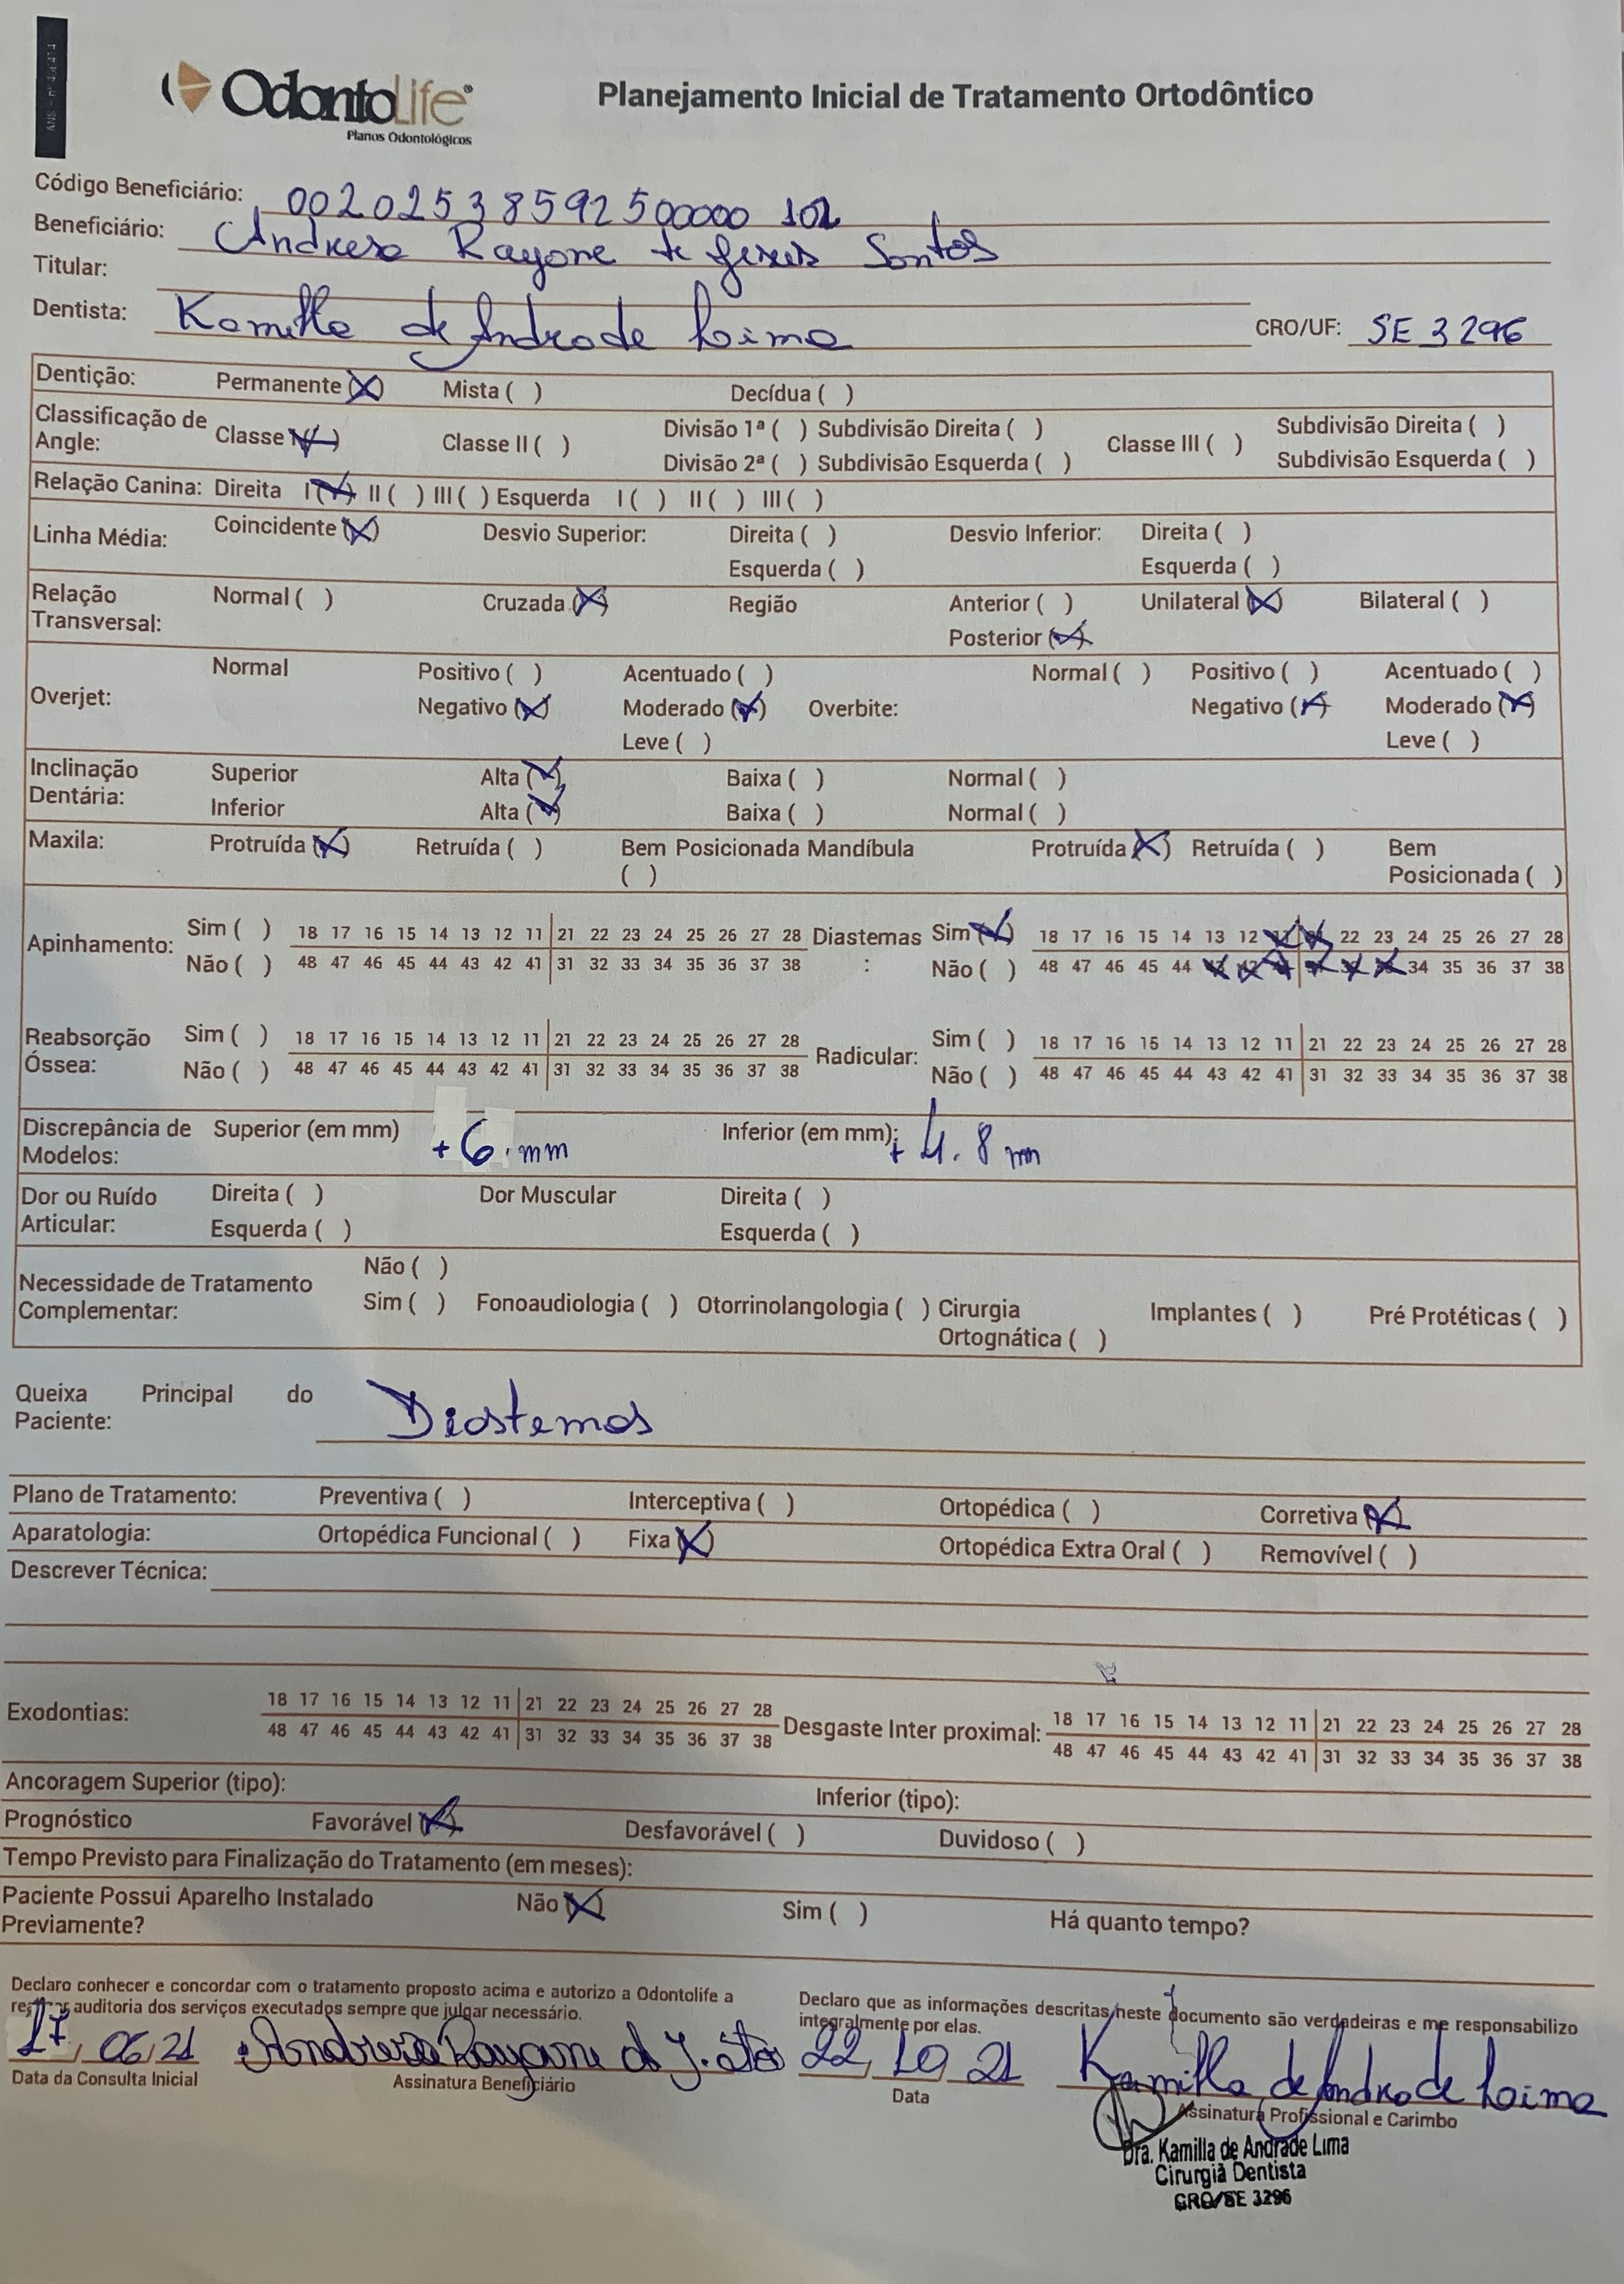 OdontoLife®
Planos Odontológicos
Planejamento Inicial de Tratamento Ortodôntico
Código Beneficiário: 00202538592500000 102
Beneficiário: Andresa Rayane de Jesus Santos
Titular:
Dentista: Kamilla de Andrade Lima CRO/UF: SE 3296
Dentição: Permanente (X) Mista ( ) Decídua ( )
Classificação de Angle: Classe I (X) Classe II ( ) Divisão 1ª ( ) Subdivisão Direita ( ) Classe III ( ) Subdivisão Direita ( )
Divisão 2ª ( ) Subdivisão Esquerda ( ) Subdivisão Esquerda ( )
Relação Canina: Direita I (X) II ( ) III ( ) Esquerda I ( ) II ( ) III ( )
Linha Média: Coincidente (X) Desvio Superior: Direita ( ) Desvio Inferior: Direita ( )
Esquerda ( ) Esquerda ( )
Relação Transversal: Normal ( ) Cruzada (X) Região Anterior ( ) Unilateral (X) Bilateral ( )
Posterior (X)
Overjet: Normal Positivo ( ) Acentuado ( ) Normal ( ) Positivo ( ) Acentuado ( )
Negativo (X) Moderado (X) Overbite: Negativo (X) Moderado (X)
Leve ( ) Leve ( )
Inclinação Dentária: Superior Alta (X) Baixa ( ) Normal ( )
Inferior Alta (X) Baixa ( ) Normal ( )
Maxila: Protruída (X) Retruída ( ) Bem Posicionada ( ) Mandíbula Protruída (X) Retruída ( ) Bem Posicionada ( )
Apinhamento: Sim ( ) 18 17 16 15 14 13 12 11 21 22 23 24 25 26 27 28 Diastemas: Sim (X) 18 17 16 15 14 13 12 11 21 22 23 24 25 26 27 28
Não ( ) 48 47 46 45 44 43 42 41 31 32 33 34 35 36 37 38 Não ( ) 48 47 46 45 44 43 42 41 31 32 33 34 35 36 37 38
Reabsorção Óssea: Sim ( ) 18 17 16 15 14 13 12 11 21 22 23 24 25 26 27 28 Radicular: Sim ( ) 18 17 16 15 14 13 12 11 21 22 23 24 25 26 27 28
Não ( ) 48 47 46 45 44 43 42 41 31 32 33 34 35 36 37 38 Não ( ) 48 47 46 45 44 43 42 41 31 32 33 34 35 36 37 38
Discrepância de Modelos: Superior (em mm) +6.mm Inferior (em mm): + 4.8 mm
Dor ou Ruído Articular: Direita ( ) Dor Muscular Direita ( )
Esquerda ( ) Esquerda ( )
Necessidade de Tratamento Complementar: Não ( )
Sim ( ) Fonoaudiologia ( ) Otorrinolangologia ( ) Cirurgia Ortognática ( ) Implantes ( ) Pré Protéticas ( )
Queixa Principal do Paciente: Diastemas
Plano de Tratamento: Preventiva ( ) Interceptiva ( ) Ortopédica ( ) Corretiva (X)
Aparatologia: Ortopédica Funcional ( ) Fixa (X) Ortopédica Extra Oral ( ) Removível ( )
Descrever Técnica:
Exodontias: 18 17 16 15 14 13 12 11 21 22 23 24 25 26 27 28 Desgaste Inter proximal: 18 17 16 15 14 13 12 11 21 22 23 24 25 26 27 28
48 47 46 45 44 43 42 41 31 32 33 34 35 36 37 38 48 47 46 45 44 43 42 41 31 32 33 34 35 36 37 38
Ancoragem Superior (tipo): Inferior (tipo):
Prognóstico Favorável (X) Desfavorável ( ) Duvidoso ( )
Tempo Previsto para Finalização do Tratamento (em meses):
Paciente Possui Aparelho Instalado Previamente? Não (X) Sim ( ) Há quanto tempo?
Declaro conhecer e concordar com o tratamento proposto acima e autorizo a Odontolife a
auditoria dos serviços executados sempre que julgar necessário.
Declaro que as informações descritas neste documento são verdadeiras e me responsabilizo
integralmente por elas.
17/06/21 Rayane d J. Stos 22/10/21 Kamilla de Andrade Lima
Data da Consulta Inicial Assinatura Beneficiário Data Assinatura Profissional e Carimbo
Dra. Kamilla de Andrade Lima
Cirurgiã Dentista
CRO/SE 3296